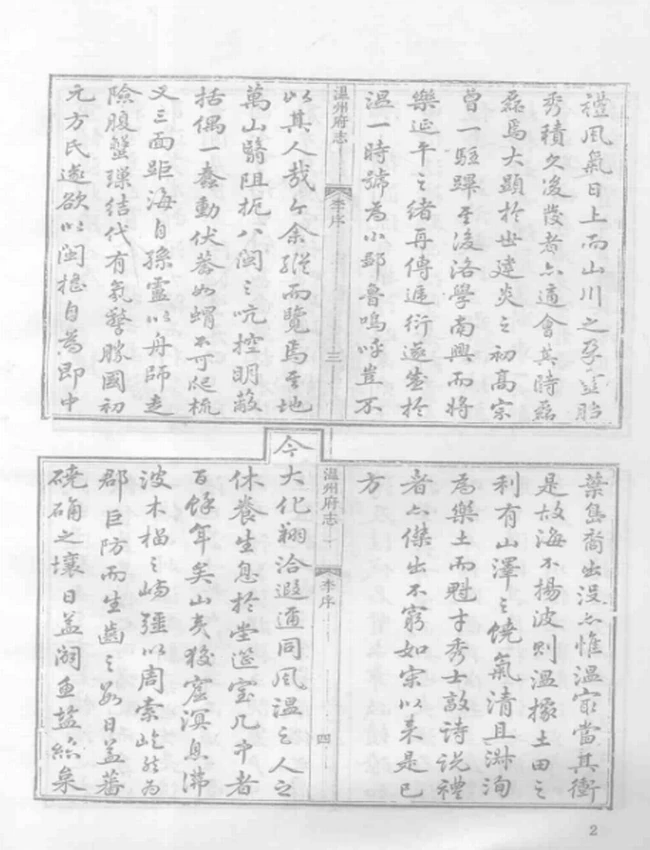 禮風氣日上而山川之孕靈貽
秀積久後發者亦適會其時磊
磊焉大顯於世建炎之初高宗
曾一駐蹕至後洛學南興而將
樂延平之緒再傳遞衍遂於
温一時號為小鄒魯嗚呼豈不
温州府志
李序
三
以其人哉今余縱而覽焉其地
萬山翳阻扼八閩之吭控明蔽
括偶一蠢動伏莽如蝟不可爬梳
又三面距海自孫靈以舟師走
險腹蟹璅結代有氛孽勝國初
元方氏遂欲以閩自為即中
葉島裔出没亦惟温寔當其衝
是故海不揚波則温據土田之
利有山澤之饒氣清且淋洵
為樂土而魁才秀士敦詩説禮
者亦傑出不窮如宋以來是已
方
温州府志
李序
四
今大化翔洽遐邇同風温之人之
休養生息於堂筵室几中者
百餘年矣山夷狡窟溟息沸
波木榻之疆以周索屹然為
郡巨防而生齒之数日益蕃
磽确之壤日益闢魚鹽絲枲
2